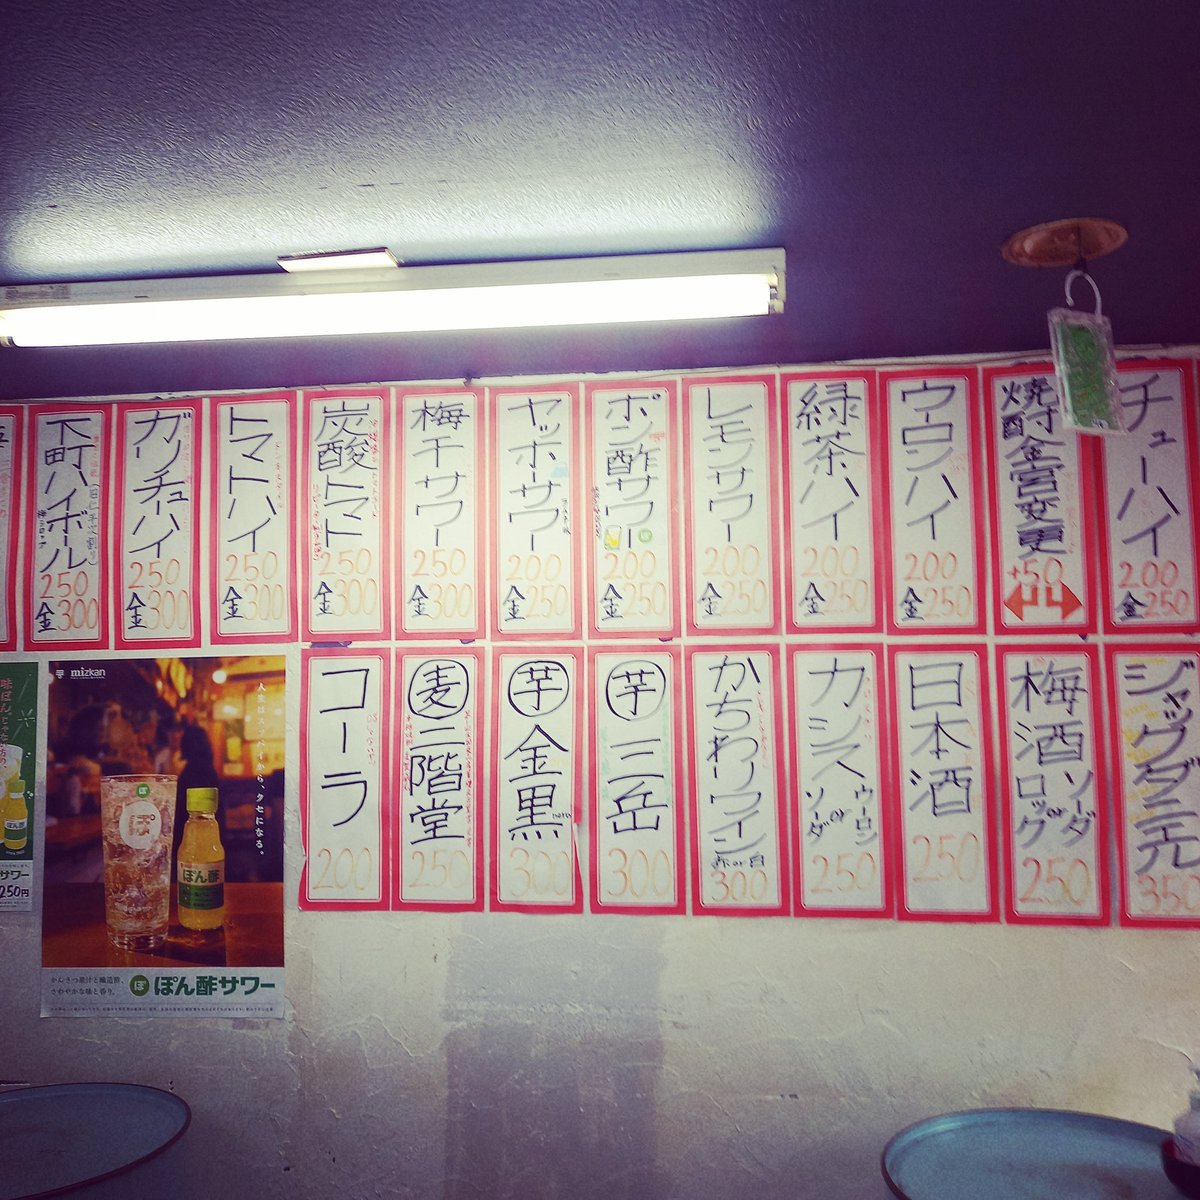 チューハイ
200
金250
焼酎金宮変更
+50
ウーロンハイ
200
金250
緑茶ハイ
200
金250
レモンサワー
200
金250
ポン酢サワー
200
金250
ヤッホーサワー
200
金250
梅干サワー
250
金300
炭酸トマト
250
金300
トマトハイ
250
金300
ガリチューハイ
250
金300
下町ハイボール
250
金300
ジャックダニエル
350
梅酒
ソーダ
or
ロック
250
日本酒
250
カシス
ウーロン
or
ソーダ
250
かちわりワイン
赤or白
300
芋 三岳
300
芋 金黒
300
麦 二階堂
250
コーラ
200
mizkan
人生はスッパイから、クセになる。
ぽ
ぽん酢
かんきつ果汁と醸造酢、
さわやかな味と香り。
ぽ ぽん酢サワー
サワー
250円